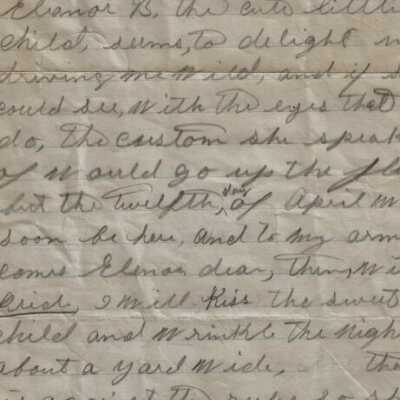 Elenor B. the cute little
child, seems, to delight
driving me wild, and if s
could see, with the eyes that
do, the custom she speak
of would go up the flu
but the twelfth, day of April w
soon be here, and to my arm
comes Elenor dear, then, wi
I will Kiss the sweet
child and wrinkle the nigh
about a yard wide, the
is against the rules so s